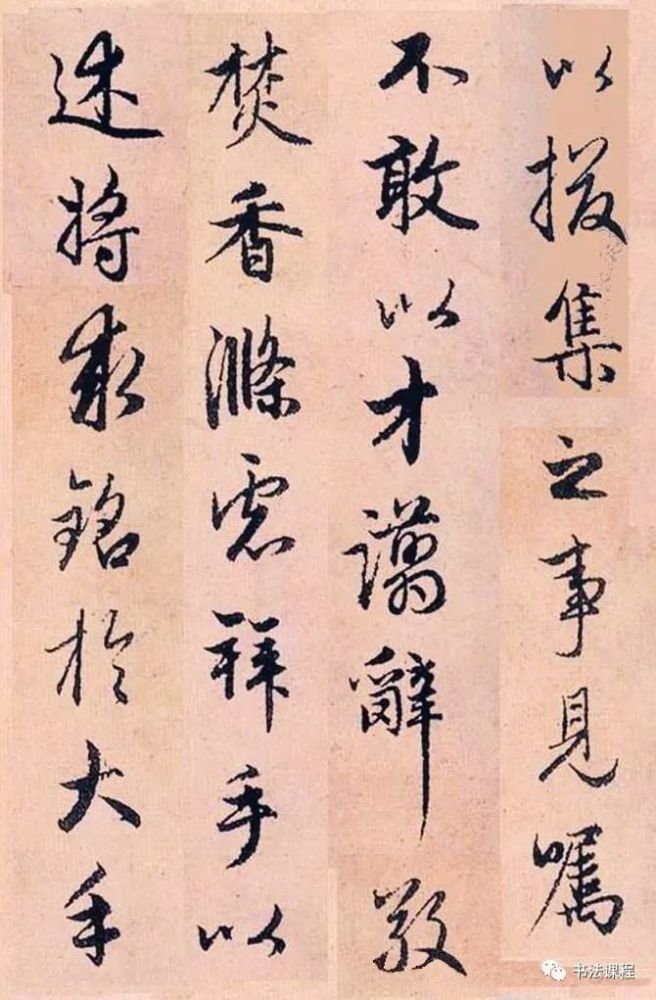 以掇集之事見囑
不敢以才譾辭敬
焚香滌慮拜手以
述將求銘於大手
书法课程